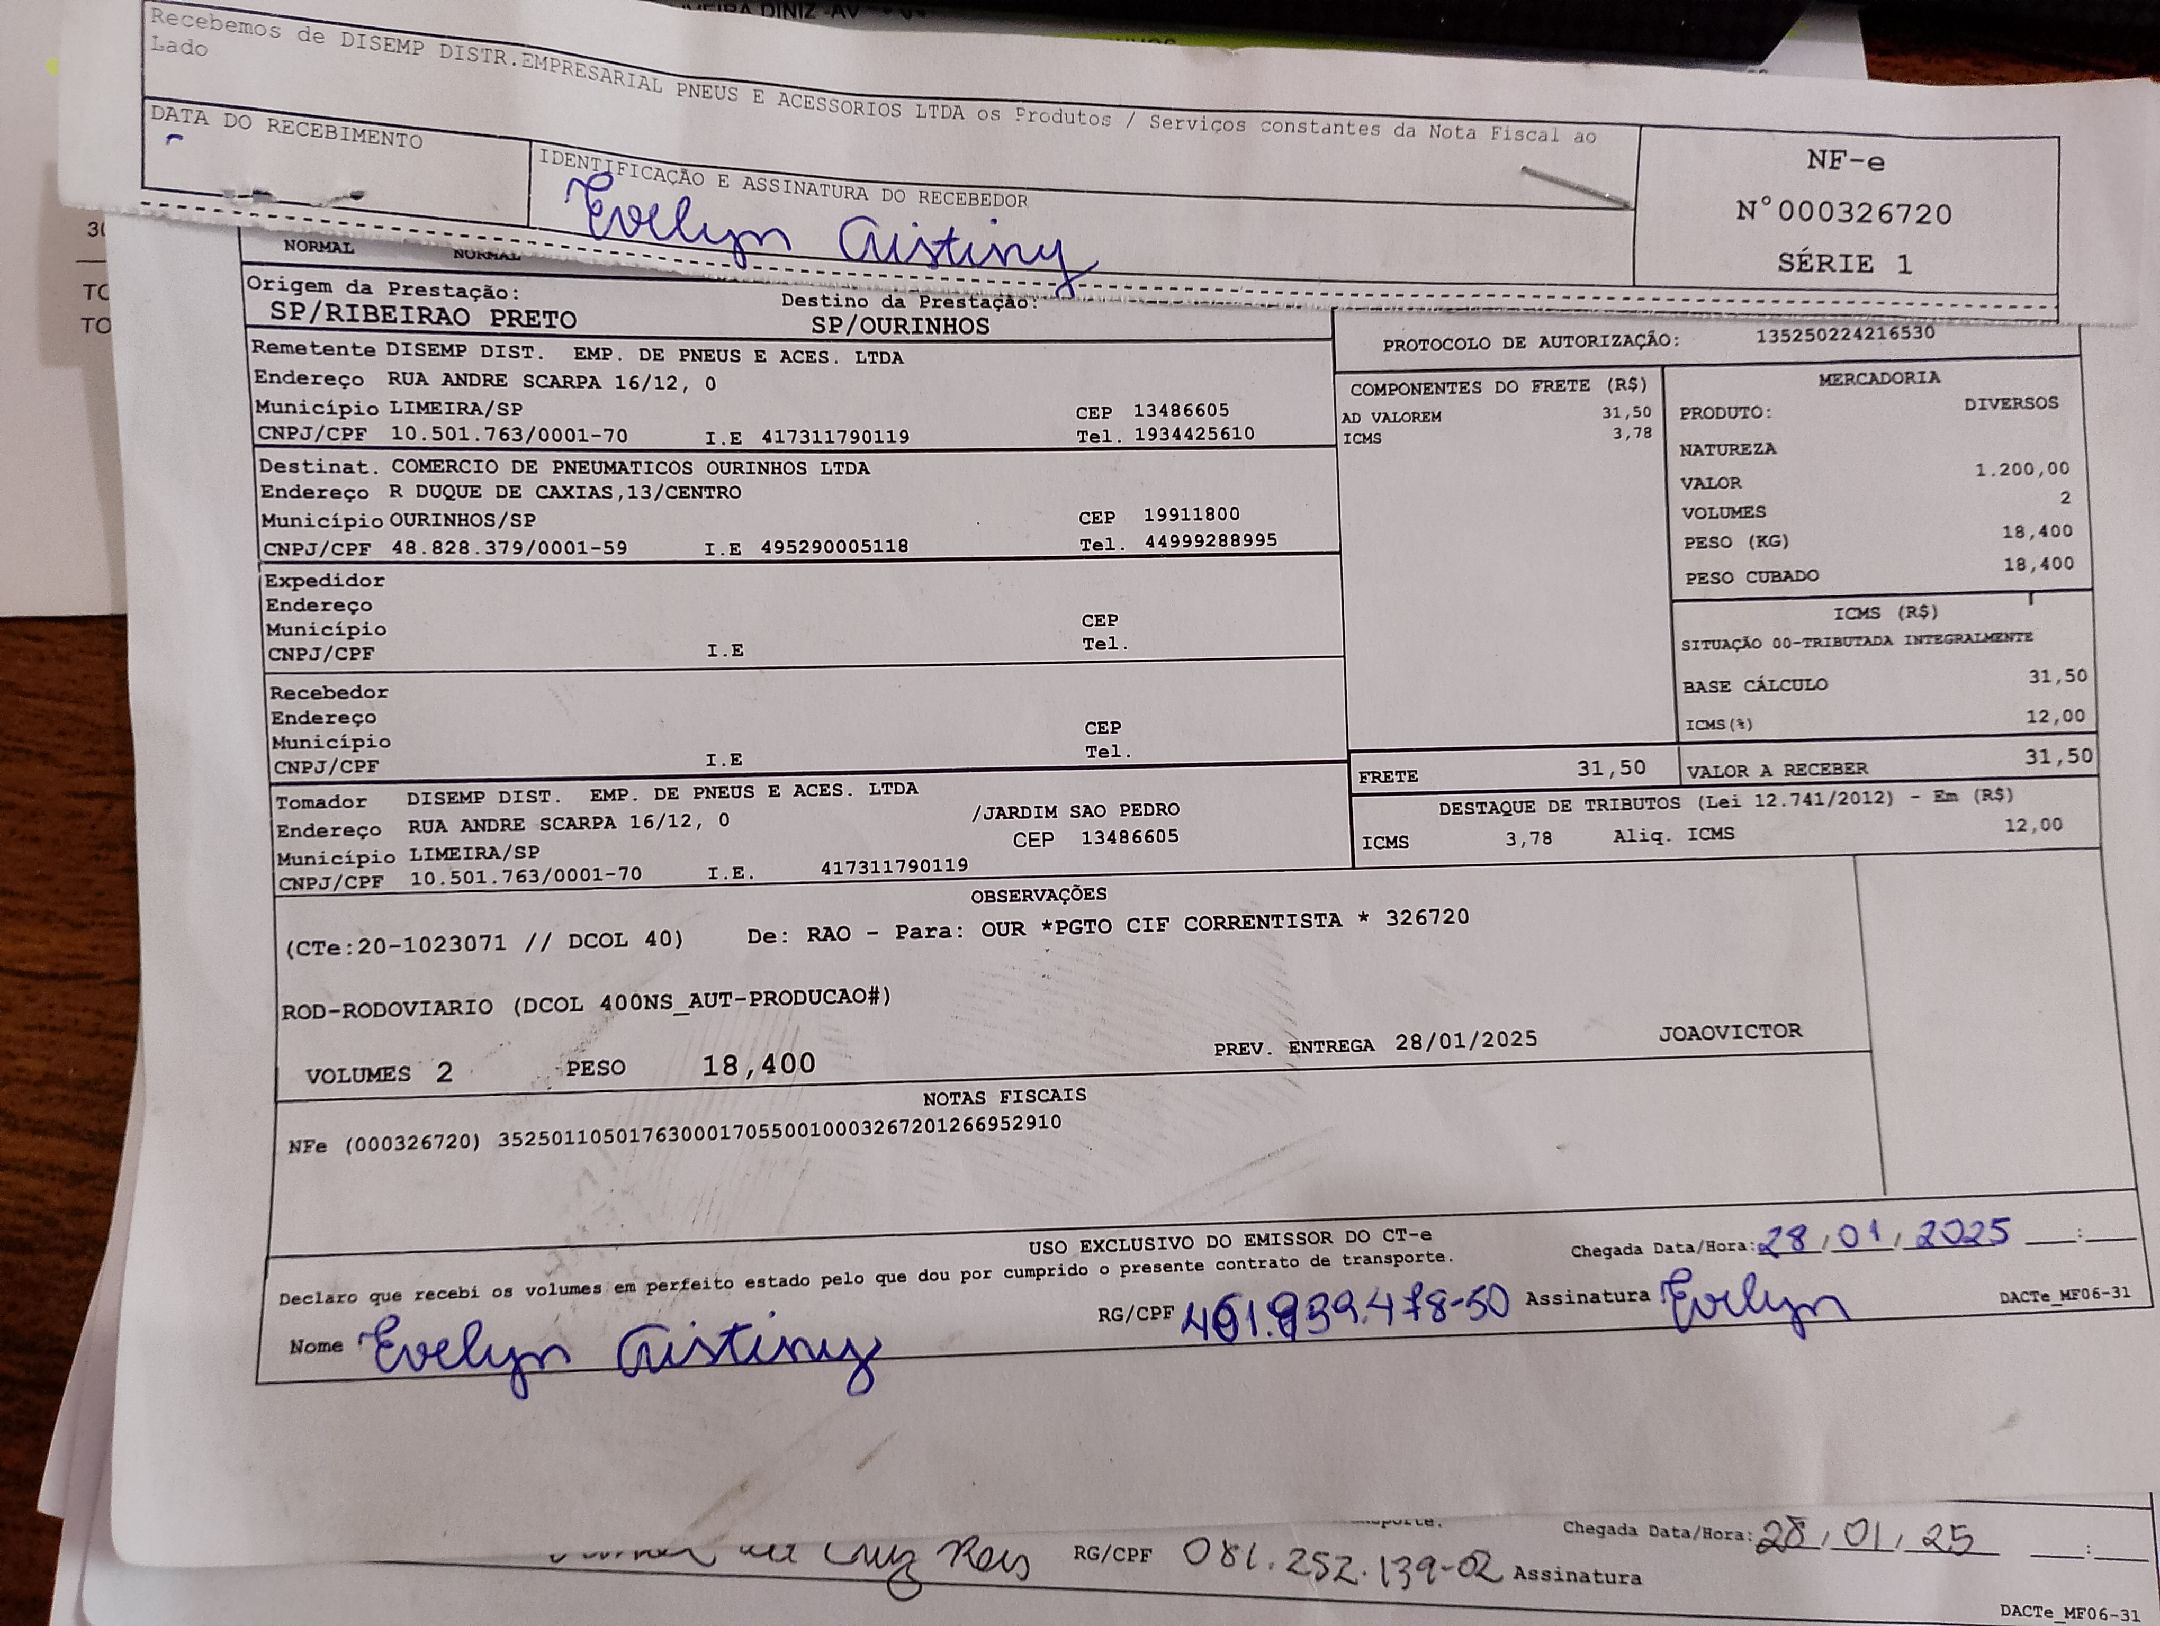 Recebemos de DISEMP DISTR.EMPRESARIAL PNEUS E ACESSORIOS LTDA os Produtos / Serviços constantes da Nota Fiscal ao
Lado
DATA DO RECEBIMENTO
IDENTIFICAÇÃO E ASSINATURA DO RECEBEDOR
Evelyn Cristiny
NF-e
N°000326720
SÉRIE 1
NORMAL NORMAL
Origem da Prestação: Destino da Prestação:
SP/RIBEIRAO PRETO SP/OURINHOS
PROTOCOLO DE AUTORIZAÇÃO: 135250224216530
Remetente DISEMP DIST. EMP. DE PNEUS E ACES. LTDA
Endereço RUA ANDRE SCARPA 16/12, 0
Município LIMEIRA/SP CEP 13486605
CNPJ/CPF 10.501.763/0001-70 I.E 417311790119 Tel. 1934425610
Destinat. COMERCIO DE PNEUMATICOS OURINHOS LTDA
Endereço R DUQUE DE CAXIAS,13/CENTRO
Município OURINHOS/SP CEP 19911800
CNPJ/CPF 48.828.379/0001-59 I.E 495290005118 Tel. 44999288995
Expedidor
Endereço
Município CEP
CNPJ/CPF I.E Tel.
Recebedor
Endereço
Município CEP
CNPJ/CPF I.E Tel.
Tomador DISEMP DIST. EMP. DE PNEUS E ACES. LTDA
Endereço RUA ANDRE SCARPA 16/12, 0 /JARDIM SAO PEDRO
Município LIMEIRA/SP CEP 13486605
CNPJ/CPF 10.501.763/0001-70 I.E. 417311790119
COMPONENTES DO FRETE (R$)
AD VALOREM 31,50
ICMS 3,78
MERCADORIA
PRODUTO: DIVERSOS
NATUREZA
VALOR 1.200,00
VOLUMES 2
PESO (KG) 18,400
PESO CUBADO 18,400
ICMS (R$)
SITUAÇÃO 00-TRIBUTADA INTEGRALMENTE
BASE CÁLCULO 31,50
ICMS(%) 12,00
FRETE 31,50 VALOR A RECEBER 31,50
DESTAQUE DE TRIBUTOS (Lei 12.741/2012) - Em (R$)
ICMS 3,78 Aliq. ICMS 12,00
OBSERVAÇÕES
(CTe:20-1023071 // DCOL 40) De: RAO - Para: OUR *PGTO CIF CORRENTISTA * 326720
ROD-RODOVIARIO (DCOL 400NS_AUT-PRODUCAO#)
VOLUMES 2 PESO 18,400 PREV. ENTREGA 28/01/2025 JOAOVICTOR
NOTAS FISCAIS
NFe (000326720) 35250110501763000170550010003267201266952910
USO EXCLUSIVO DO EMISSOR DO CT-e
Declaro que recebi os volumes em perfeito estado pelo que dou por cumprido o presente contrato de transporte.
Chegada Data/Hora: 28/01/2025 :
Nome Evelyn Cristiny RG/CPF Assinatura Evelyn
DACTe_MF06-31
Chegada Data/Hora: 28/01/25 :
Cruz Reis RG/CPF 081.252.139-02 Assinatura
DACTe_MF06-31